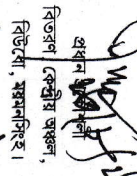 প্রধান
বিতরণ কেন্দ্রীয় অঞ্চল,
বিউবো, ময়মনসিংহ।